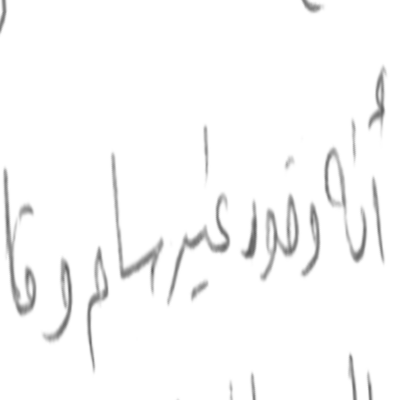 أنه وقود غير سام وقا